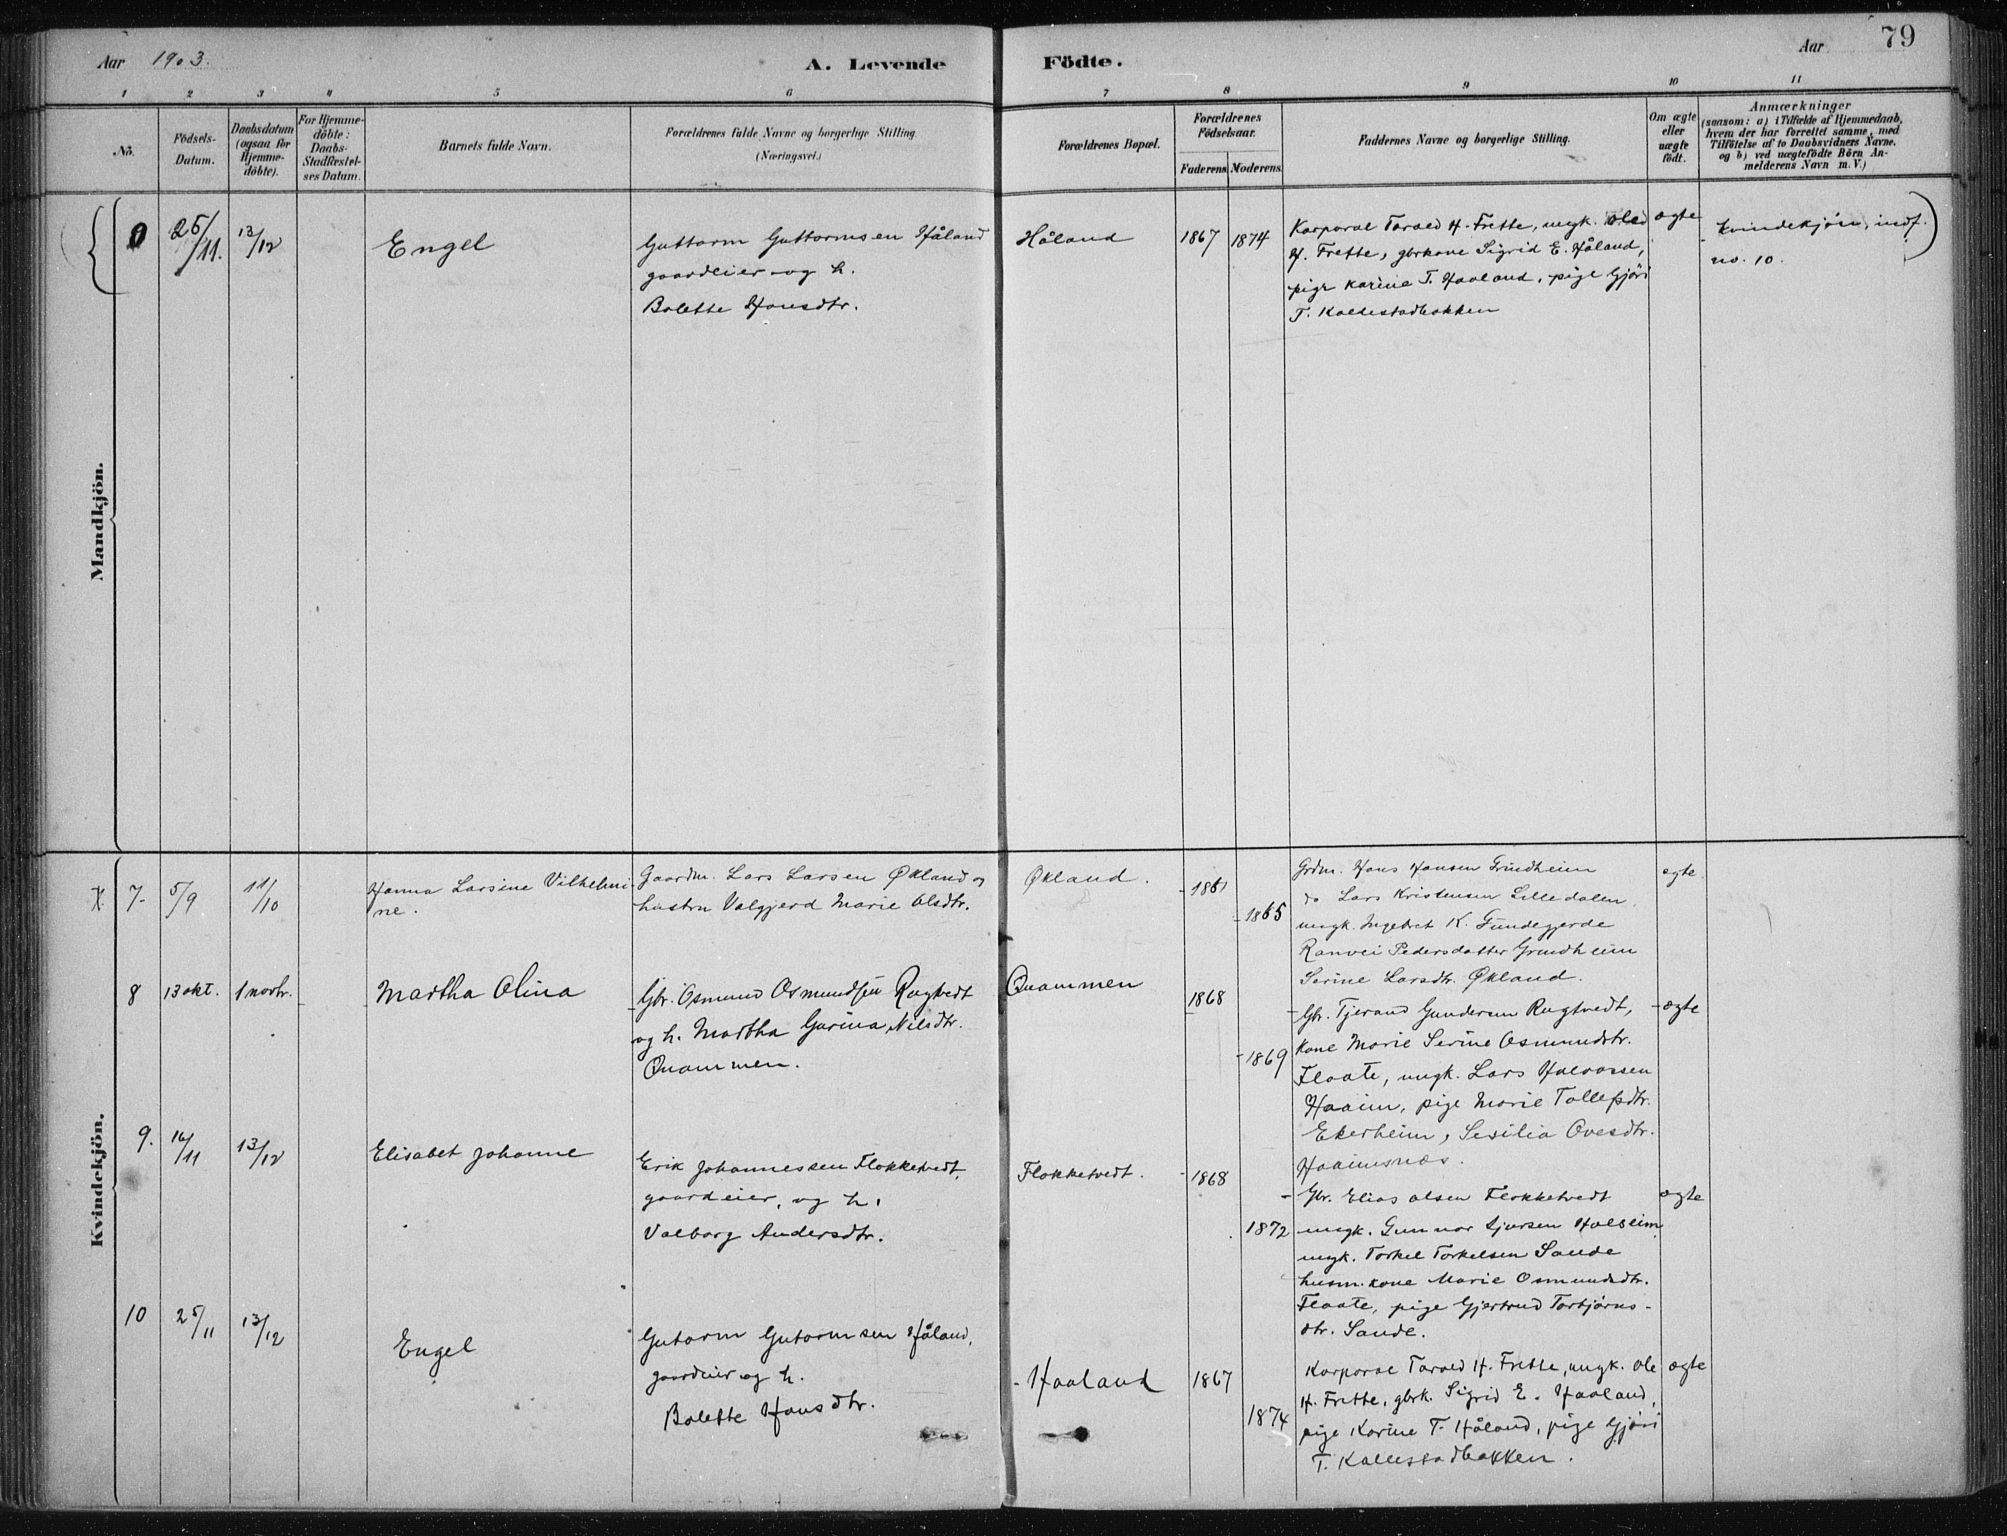 Aar 1903.
A. Levende Födte.
Aar
79
1 2 3 4 5 6 7 8 9 10 11
No.
Födsels-
Datum.
Daabsdatum
(ogsaa for
Hjemme-
döbte).
For Hjemme-
döbte:
Daabs-
Stadfæstel-
ses Datum.
Barnets fulde Navn.
Forældrenes fulde Navne og borgerlige Stilling.
(Næringsvei.)
Forældrenes Bopæl.
Forældrenes
Födselsaar.
Faderens. Moderens.
Faddernes Navne og borgerlige Stilling.
Om ægte
eller
uægte
födt.
Anmærkninger
(saasom: a) i Tilfælde af Hjemmedaab,
hvem der har forrettet samme, med
Tilföielse af to Daabsvidners Navne.
og b) ved uægtefödte Börn An-
melderens Navn m. V.)
Mandkjön.
0
25/11.
13/12
Engel
Guttorm Guttormsen Håland
gaardeier og h.
Bolette Hansdtr.
Håland
1867
1874
Korporal Tarald H. Frette, ungk. Ole
H. Frette, gbrkone Sigrid E. Håland,
pige Karine T. Haaland, pige Gjöri
T. Kallestadbakken
ægte
Kvindekjön, indf.
no. 10.
Kvindekjön.
7.
5/9
11/10
Hanna Larsine Vilhelmi
ne.
Gaardm. Lars Larsen Økland og
hustru Valgjerd Marie Olsdtr.
Økland.
1861
1865
Grdm. Hans Hansen Grindheim
do Lars Kristensen Lilledalen
ungk. Ingebret K.
Ranvei Pedersdatter Grindheim
Serine Larsdtr. Økland.
egte.
8
13 okt.
1 novbr.
Martha Olina
Gbr. Osmund Osmundsen Rugtvedt
og h. Martha Gurina Nilsdtr.
Qvammen.
Qvammen
1868
1869
Gbr. Tjerand Gundersen Rugtvedt,
kone Marie Serine Osmundsdtr.
Flaate, ungk. Lars Halvorsen
Haaim, pige Marie Tollefsdtr.
Ekerheim, Sesilia Ovesdtr.
Haaimsnæs.
ægte
9.
16/11
13/12
Elisabet Johanne
Erik Johannessen Flokketvedt,
gaardeier, og h.
Valborg Andersdtr.
Flokketvedt.
1868
1872
Gbr. Elias Olsen Flokketvedt
ungk. Gunnar Sjursen Halseim,
ungk. Torkel Torkelsen Sande
husm. kone Marie Osmundsdtr.
Flaate, pige Gjertrud Torbjörns-
dtr. Sande.
ægte
10
25/11
13/12
Engel
Gutorm Gutormsen Håland,
gaardeier og h.
Bolette Hansdtr.
Haaland
1867
1874
Korporal Tarald H. Frette, ungk. Ole
H. Frette, gbrk. Sigrid E. Haaland,
pige Karine T. Håland, pige Gjöri
T. Kallestadbakken.
ægte